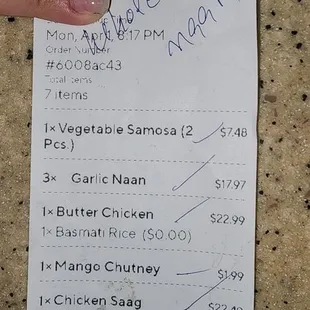 whole
naan
Mon, Apr 8:17 PM
Order Number
#6008ac43
Total items
7 items
1× Vegetable Samosa (2 Pcs.) $7.48
3× Garlic Naan $17.97
1× Butter Chicken $22.99
1× Basmati Rice ($0.00)
1× Mango Chutney $1.99
1× Chicken Saag